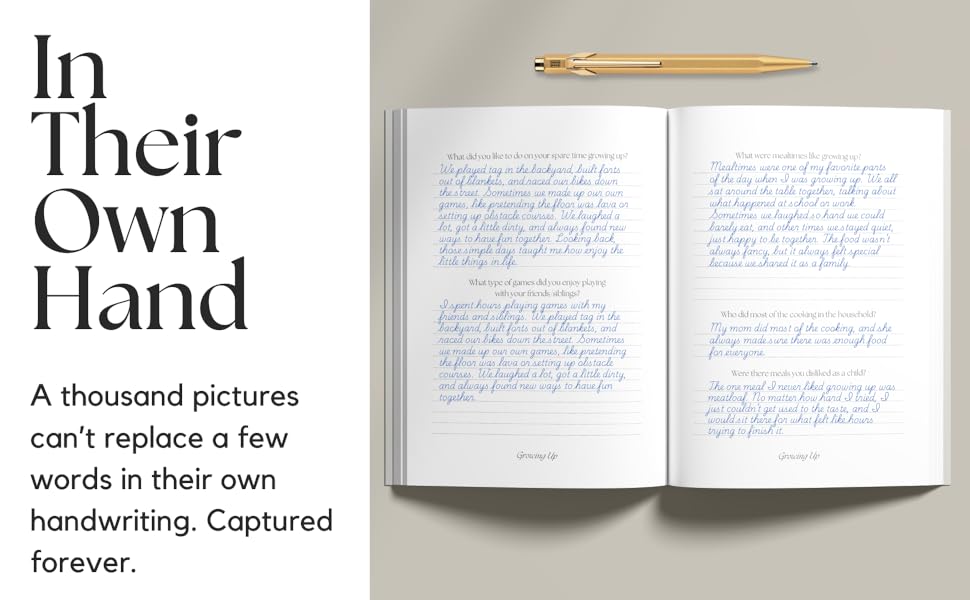 In
Their
Own
Hand
A thousand pictures
can't replace a few
words in their own
handwriting. Captured
forever.
What did you like to do on your spare time growing up?
We played tag in the backyard, built forts
out of blankets, and raced our bikes down
the street. Sometimes we made up our own
games, like pretending the floor was lava or
setting up obstacle courses. We laughed a
lot, got a little dirty, and always found new
ways to have fun together. Looking back,
those simple days taught me how enjoy the
little things in life.
What type of games did you enjoy playing
with your friends/siblings?
I spent hours playing games with my
friends and siblings. We played tag in the
backyard, built forts out of blankets, and
raced our bikes down the street. Sometimes
we made up our own games, like pretending
the floor was lava or setting up obstacle
courses. We laughed a lot, got a little dirty,
and always found new ways to have fun
together.
Growing Up
What were mealtimes like growing up?
Mealtimes were one of my favorite parts
of the day when I was growing up. We all
sat around the table together, talking about
what happened at school or work.
Sometimes we laughed so hard we could
barely eat, and other times we stayed quiet,
just happy to be together. The food wasn't
always fancy, but it always felt special
because we shared it as a family.
Who did most of the cooking in the household?
My mom did most of the cooking, and she
always made sure there was enough food
for everyone.
Were there meals you disliked as a child?
The one meal I never liked growing up was
meatloaf. No matter how hard I tried, I
just couldn't get used to the taste, and I
would sit there for what felt like hours
trying to finish it.
Growing Up